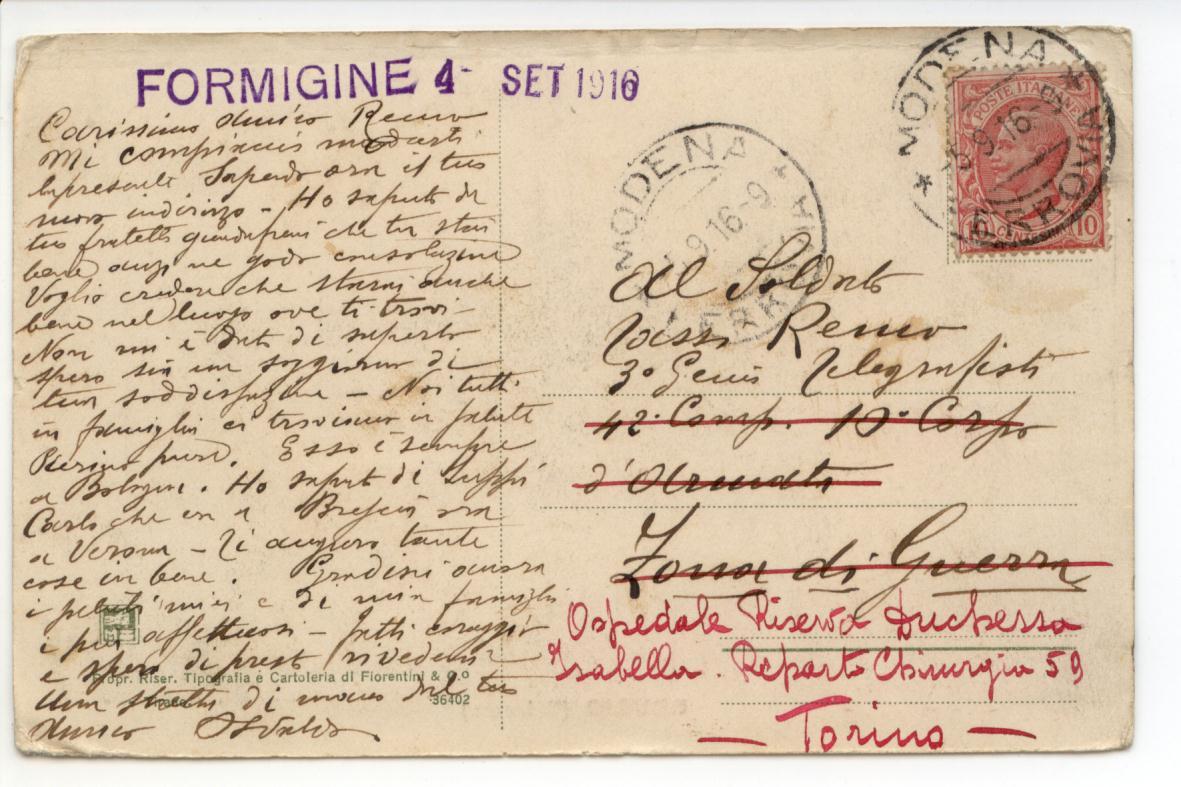 FORMIGINE 4 SET 1916
MODENA
FERROVIA
5-9 16-9
POSTE ITALIANE
CENTESIMI 10
MODENA
FERROVIA
9 16-9
Carissimo amico Remo
Mi compiaccio mandarti
la presente Sapendo ora il tuo
nuovo indirizzo - Ho saputo da
tuo fratello che tu stai
bene ne godo consolazione
Voglio credere che starai anche
bene nel luogo ove ti trovi -
Non mi è dato di saperlo
spero sia un soggiorno di
tua soddisfazione - Noi tutti
in famiglia ci troviamo in salute
Pierino pure. Esso è sempre
a Bologna. Ho saputo di
Carlo che era a Brescia ora
a Verona - Ti auguro tante
cose in bene. Gradisci ancora
i saluti miei e di mia famiglia
i più affettuosi - fatti coraggio
e spero di presto rivederci
Una stretta di mano dal tuo
amico Osvaldo
Propr. Riser. Tipografia e Cartoleria di Fiorentini & C.o
36402
Al Soldato
Remo
3° Genio Telegrafisti
42a Comp. 10° Corpo
d'Armata
Zona di Guerra
Ospedale Riserva Duchessa
Isabella. Reparto Chirurgia 59
— Torino —